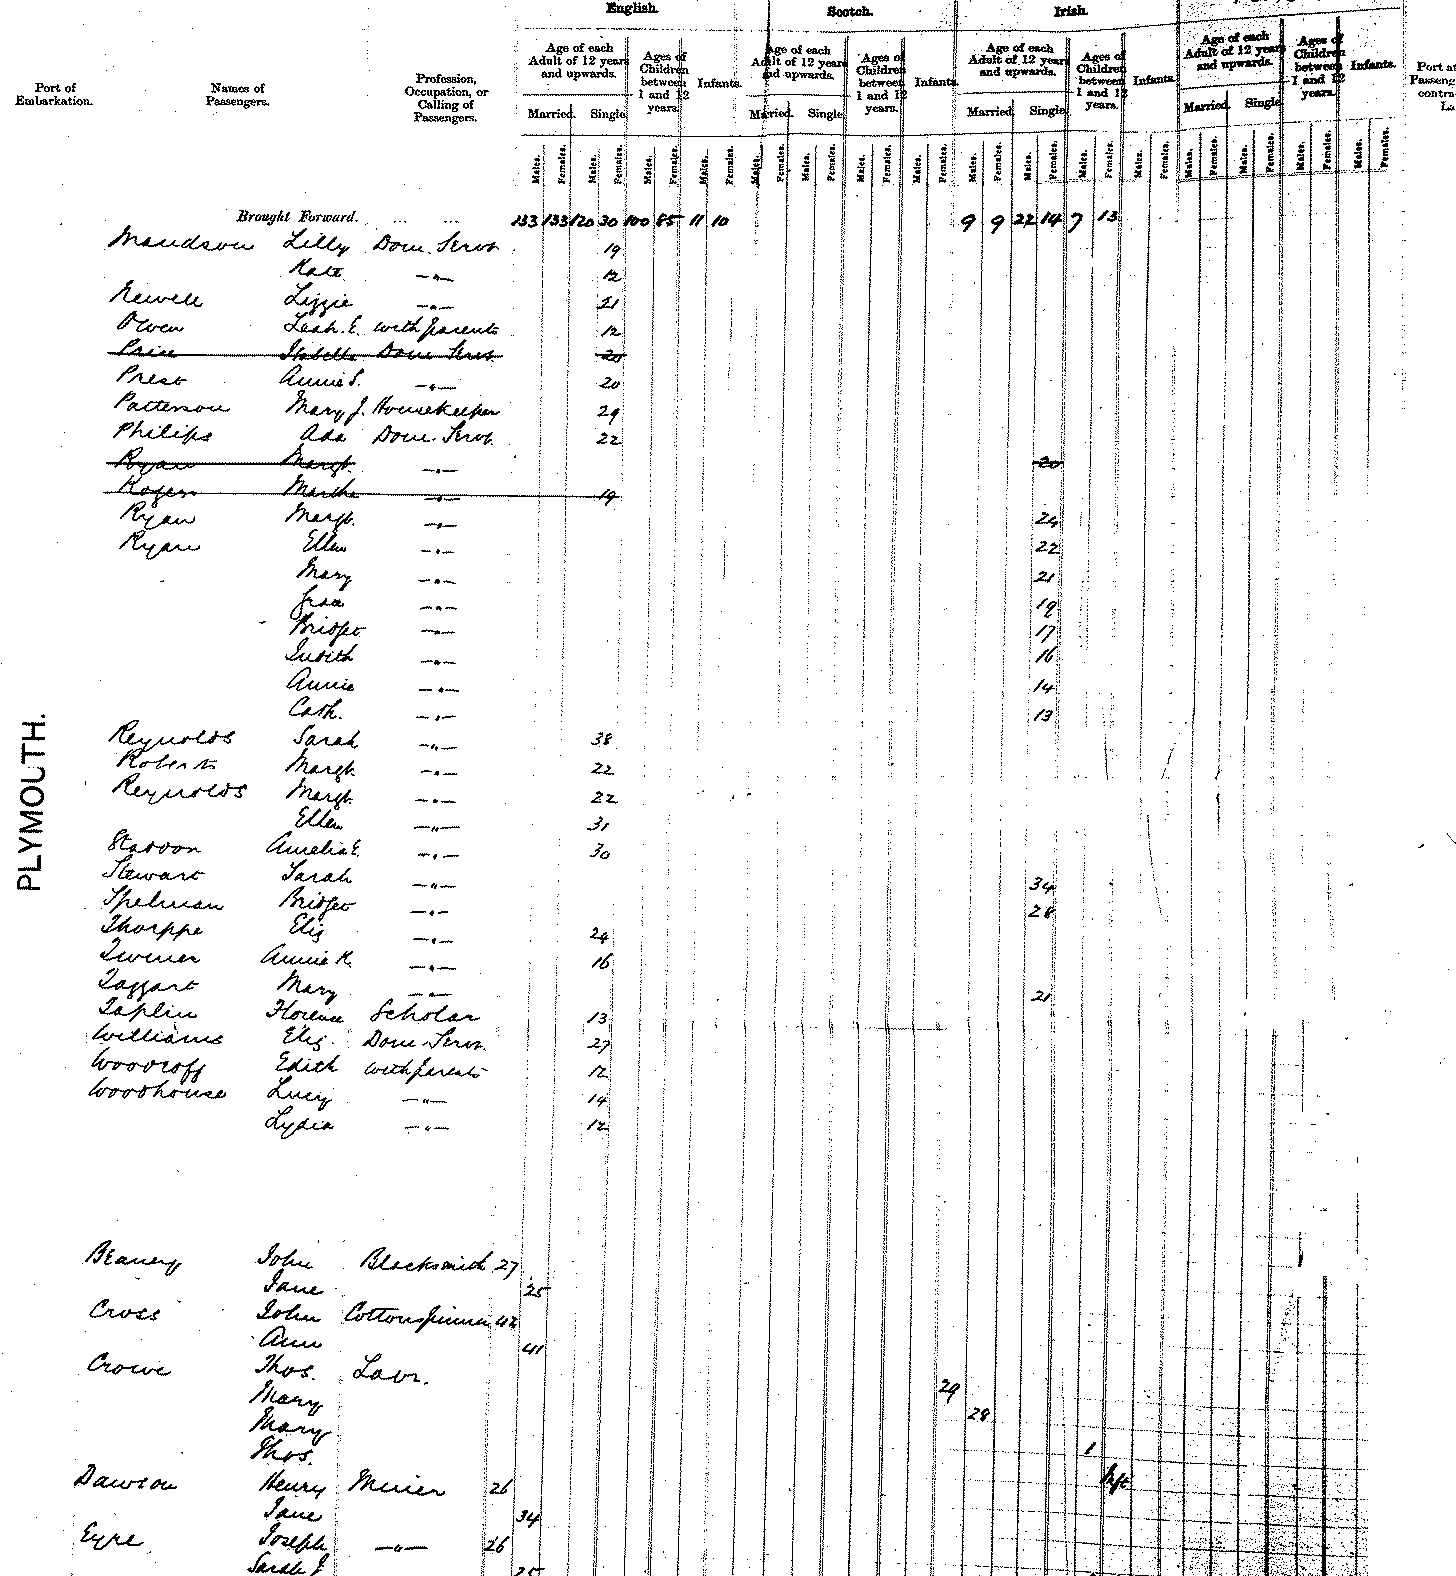 English. Scotch. Irish.
Port of Embarkation. Names of Passengers. Profession, Occupation, or Calling of Passengers. Age of each Adult of 12 years and upwards. Ages of Children between 1 and 12 years. Infants. Age of each Adult of 12 years and upwards. Ages of Children between 1 and 12 years. Infants. Age of each Adult of 12 years and upwards. Ages of Children between 1 and 12 years. Infants. Age of each Adult of 12 years and upwards. Ages of Children between 1 and 12 years. Infants.
Married. Single. Married. Single. Married. Single. Married. Single.
Males. Females. Males. Females. Males. Females. Males. Females. Males. Females. Males. Females. Males. Females. Males. Females. Males. Females. Males. Females. Males. Females. Males. Females. Males. Females. Males. Females. Males. Females. Males. Females.
Brought Forward. ... ... 133 133 120 30 100 85 11 10 9 9 22 14 7 13
Lilly Dom. Servt. 19
Kate —"— 12
Newell Lizzie —"— 21
Owen Leah. E. with parents 12
Price Isabella Dom Servt. 20
Prest Annie S. —"— 20
Patterson Mary J. Housekeeper 29
Philips Ada Dom. Servt. 22
Ryan Margt. —"— 20
Rogers Martha —"— 19
Ryan Margt. —"— 24
Ryan Ellen —"— 22
Mary —"— 21
Grace —"— 19
Bridget —"— 17
Judith —"— 16
Annie —"— 14
Cath. —"— 13
PLYMOUTH.
Reynolds Sarah —"— 38
Roberts Margt. —"— 22
Reynolds Margt. —"— 22
Ellen —"— 31
Amelia E. —"— 30
Stewart Sarah —"— 34
Spelman Bridget —"— 28
Thorppe Eliz —"— 24
Annie K. —"— 16
Taggart Mary —"— 21
Taplin Florence Scholar 13
Williams Eliz. Dom. Servt. 27
Woodroff Edith with parents 12
Woodhouse Lucy —"— 14
Lydia —"— 12
Beaney John Blacksmith 27
Jane 25
Cross John Cottonspinner 42
Ann 41
Crowe Thos. Labr. 29
Mary 28
Mary 1
Thos. Inft
Dawson Henry Miner 26
Jane 34
Eyre Joseph —"— 26
Sarah J. 25